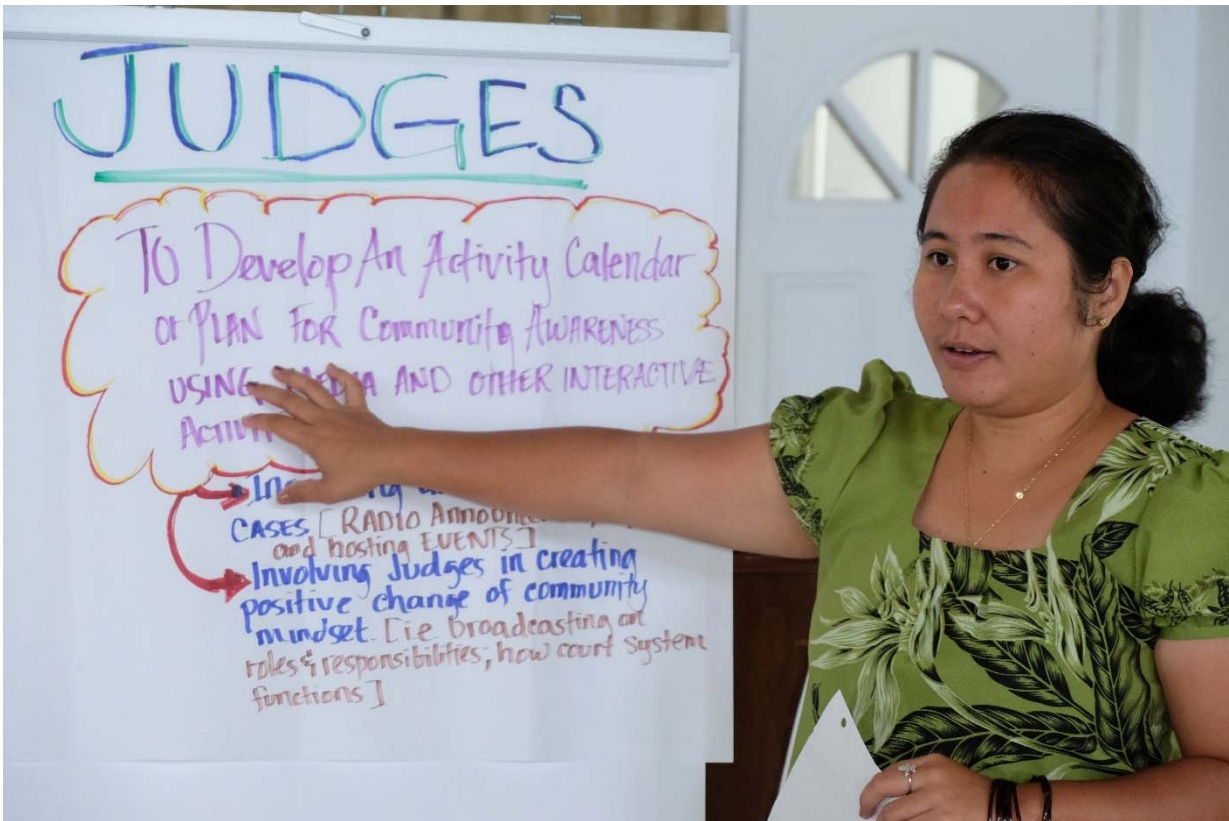 JUDGES
TO Develop An Activity Calendar
or PLAN FOR Community AWARENESS
USING AND OTHER INTERACTIVE
CASES [RADIO
and hosting EVENTS]
Involving Judges in creating
positive change of community
mindset. [i.e. broadcasting on
roles & responsibilities; how court system
functions]